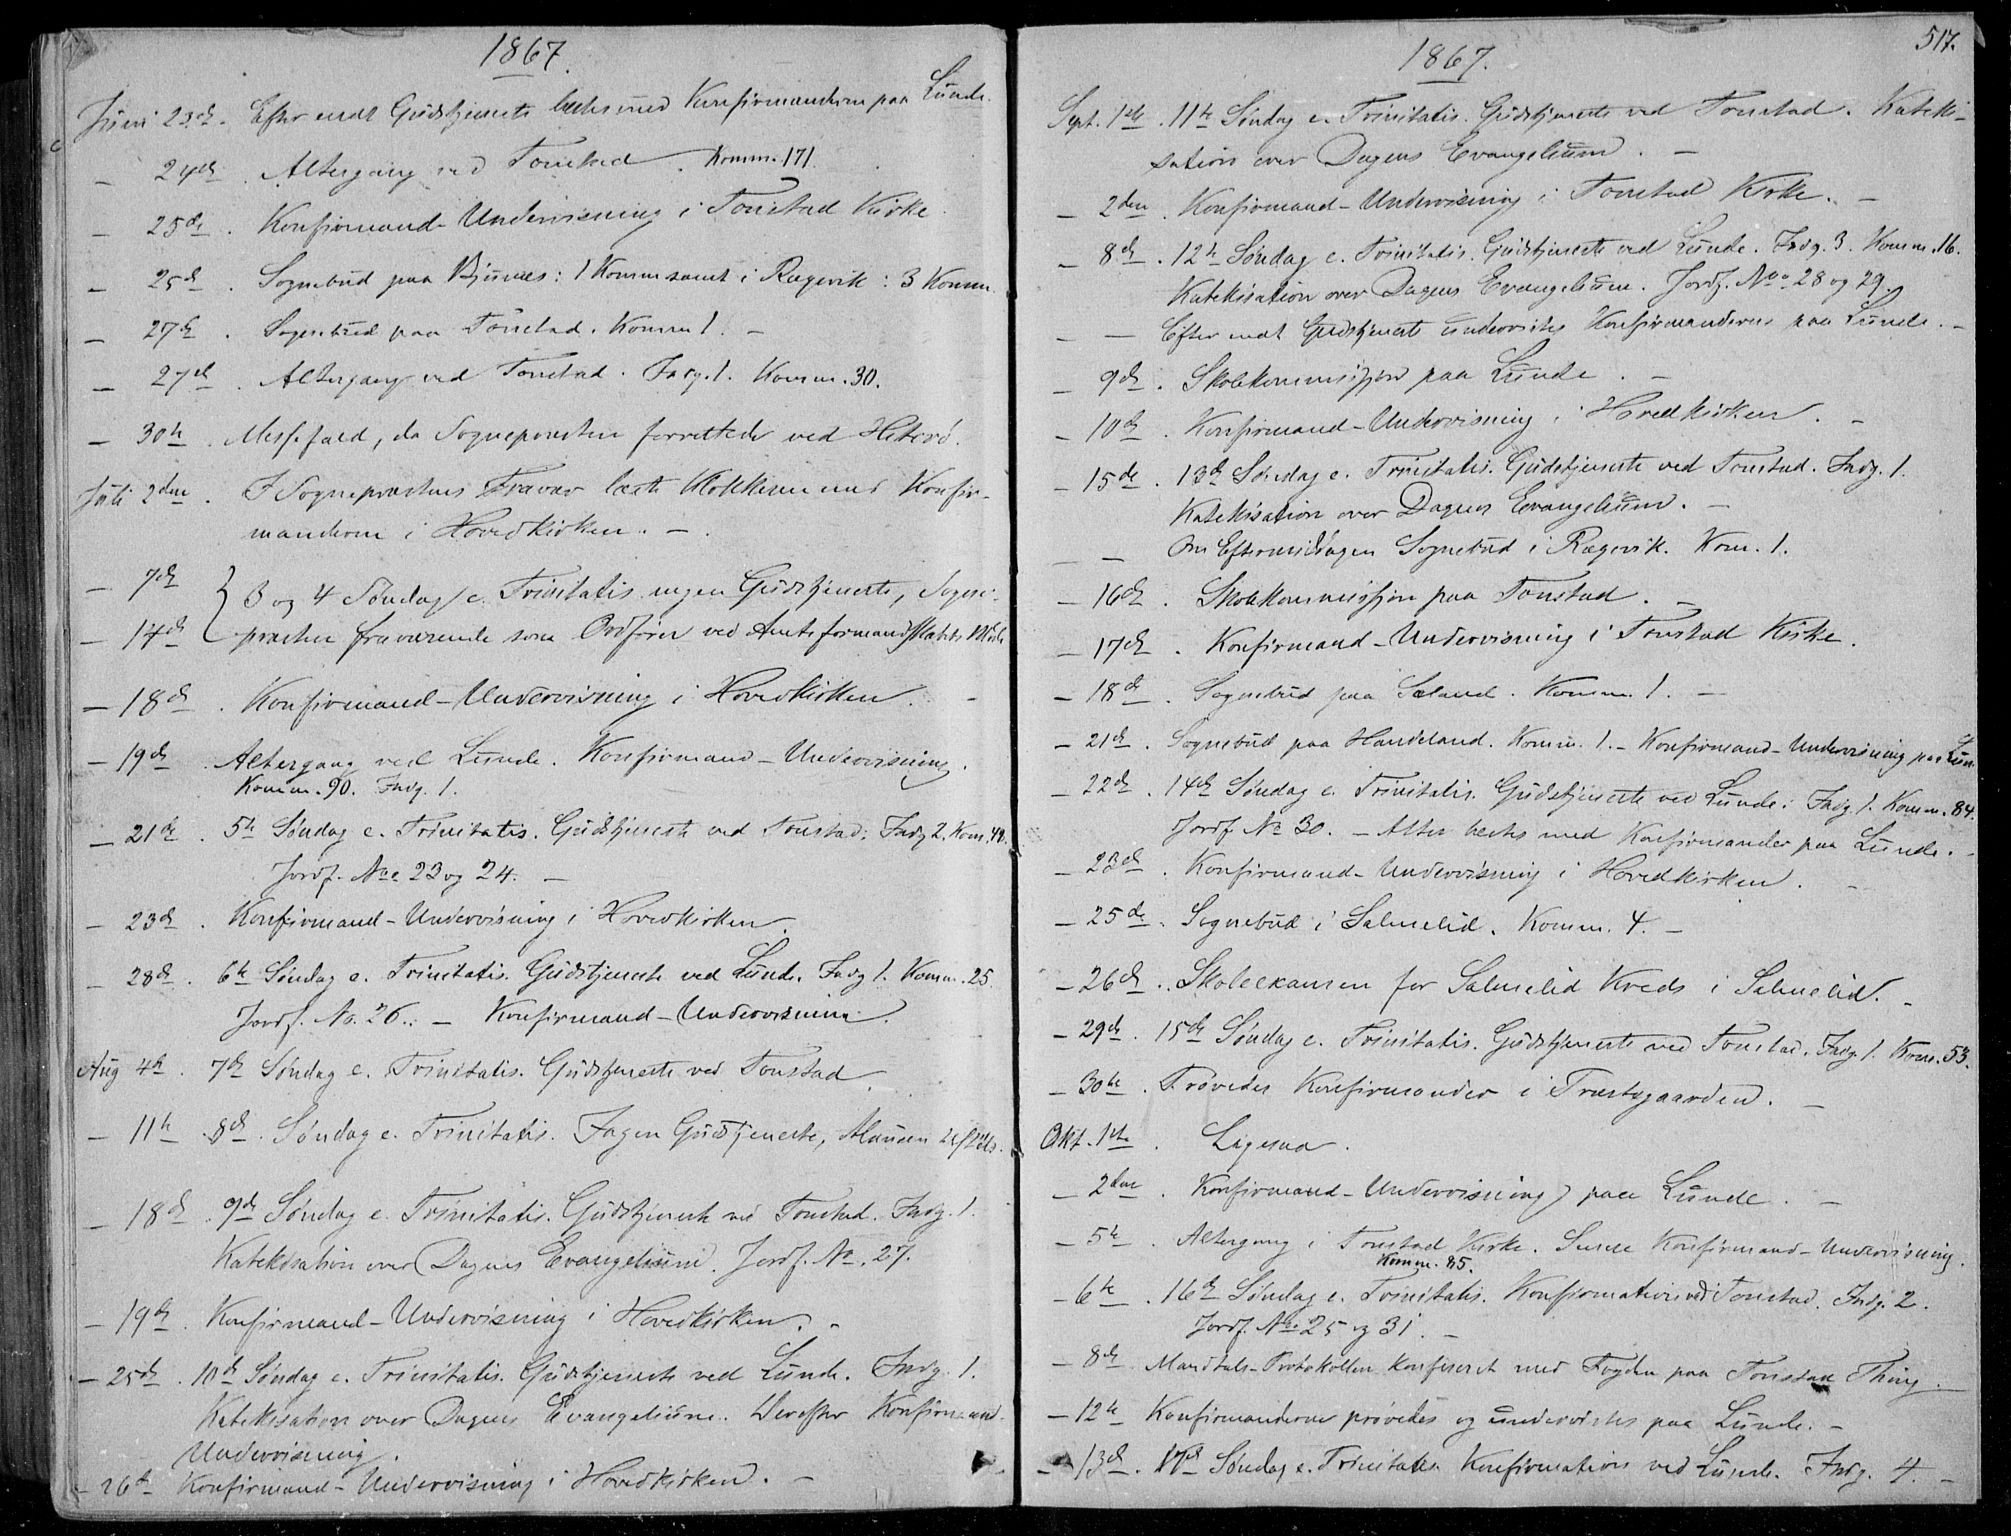 1867.
Juni 23de. Efter endt Gudstjeneste læstes med Konfirmanderne paa Lunde.
— 24de. Altergang ved Tonstad. Komm. 171.
— 25de. Konfirmand-Undervisning i Tonstad Kirke.
— 25de. Sognebud paa Bjunes: 1 Komm samt i Rægevik: 3 Komm.
— 27de. Sognebud paa Tonstad. Komm 1. —
— 27de. Altergang ved Tonstad. Indg. 1. Komm. 30.
— 30te. Messefald, da Sognepræsten forrettede ved Hitterø.
Juli 2den. I Sognepræstens Fravær læste Klokkeren med Konfir-
manderne i Hovedkirken. —
— 7de } 3 og 4 Søndag e. Trinitatis ingen Gudstjeneste, Sogne-
— 14de præsten fraværende som Ordfører ved Amtsformandskabets Møde
— 18de. Konfirmand-Undervisning i Hovedkirken. —
— 19de. Altergang ved Lunde. Konfirmand-Undervisning.
Komm. 90. Indg. 1.
— 21de. 5te Søndag e. Trinitatis. Gudstjeneste ved Tonstad. Indg 2. Kom.
Jordf. Noe 23 og 24. —
— 23de. Konfirmand-Undervisning i Hovedkirken.
— 28de. 6te Søndag e. Trinitatis. Gudstjeneste ved Lunde. Indg 1. Komm. 25
Jordf. No. 26. — Konfirmand-Undervisning.
Aug 4de. 7de Søndag e. Trinitatis. Gudstjeneste ved Tonstad.
— 11te. 8de. Søndag e. Trinitatis. Ingen Gudstjeneste,
— 18de. 9de Søndag e. Trinitatis. Gudstjeneste ved Tonstad. Indg. 1.
Katekisation over Dagens Evangelium. Jordf. No. 27.
— 19de. Konfirmand-Undervisning i Hovedkirken. —
— 25de. 10de Søndag e. Trinitatis. Gudstjeneste ved Lunde. Indg. 1.
Katekisation over Dagens Evangelium. Derefter Konfirmand-
Undervisning.
— 26de Konfirmand-Undervisning i Hovedkirken. —
517.
1867.
Sept. 1ste. 11te Søndag e. Trinitatis. Gudstjeneste ved Tonstad. Kateki-
sation over Dagens Evangelium. —
— 2den. Konfirmand-Undervisning i Tonstad Kirke. —
— 8de. 12te Søndag e. Trinitatis. Gudstjeneste ved Lunde. Indg. 3. Komm. 16.
Katekisation over Dagens Evangelium. Jordf. Noe 28 og 29.
— — Efter endt Gudstjeneste undervistes Konfirmanderne paa Lunde. —
— 9de. Skolekommission paa Lunde. —
— 10de. Konfirmand-Undervisning i Hovedkirken. —
— 15de. 13de Søndag e. Trinitatis. Gudstjeneste ved Tonstad. Indg. 1.
Katekisation over Dagens Evangelium. —
— Om Eftermiddagen Sognebud i Rægevik. Kom. 1.
— 16de. Skolekommission paa Tonstad. —
— 17de. Konfirmand-Undervisning i Tonstad Kirke.
— 18de. Sognebud paa Saland. Komm. 1. —
— 21de. Sognebud paa Handeland. Komm. 1. — Konfirmand-Undervisning paa Lun
— 22de. 14de Søndag e. Trinitatis. Gudstjeneste ved Lunde. Indg. 1. Komm. 84.
Jordf No 30. — Atter læstes med Konfirmander paa Lunde. —
— 23de. Konfirmand-Undervisning i Hovedkirken. —
— 25de. Sognebud i Salmelid. Komm. 4. —
— 26de. Skoleexamen for Salmelid Kreds i Salmelid. —
— 29de. 15de Søndag e. Trinitatis. Gudstjeneste ved Tonstad. Indg. 1. Kom. 53.
— 30te. Prøvedes Konfirmander i Præstegaarden. —
Okt. 1ste. Ligesaa.
— 2den. Konfirmand-Undervisning paa Lunde. —
— 5te. Altergang i Tonstad Kirke. Konfirmand-Undervisning.
Komm. 85.
— 6te. 16de Søndag e. Trinitatis. Konfirmation ved Tonstad. Indg. 2.
Jordf. Noe 25 og 31. —
— 8de. Mandtals-Protokollen konfereret med Fogden paa Tonstad Thing. —
— 12te Konfirmanderne prøvedes og undervistes paa Lunde. —
— 13de. 17de Søndag e. Trinitatis. Konfirmation ved Lunde. Indg. 4. —